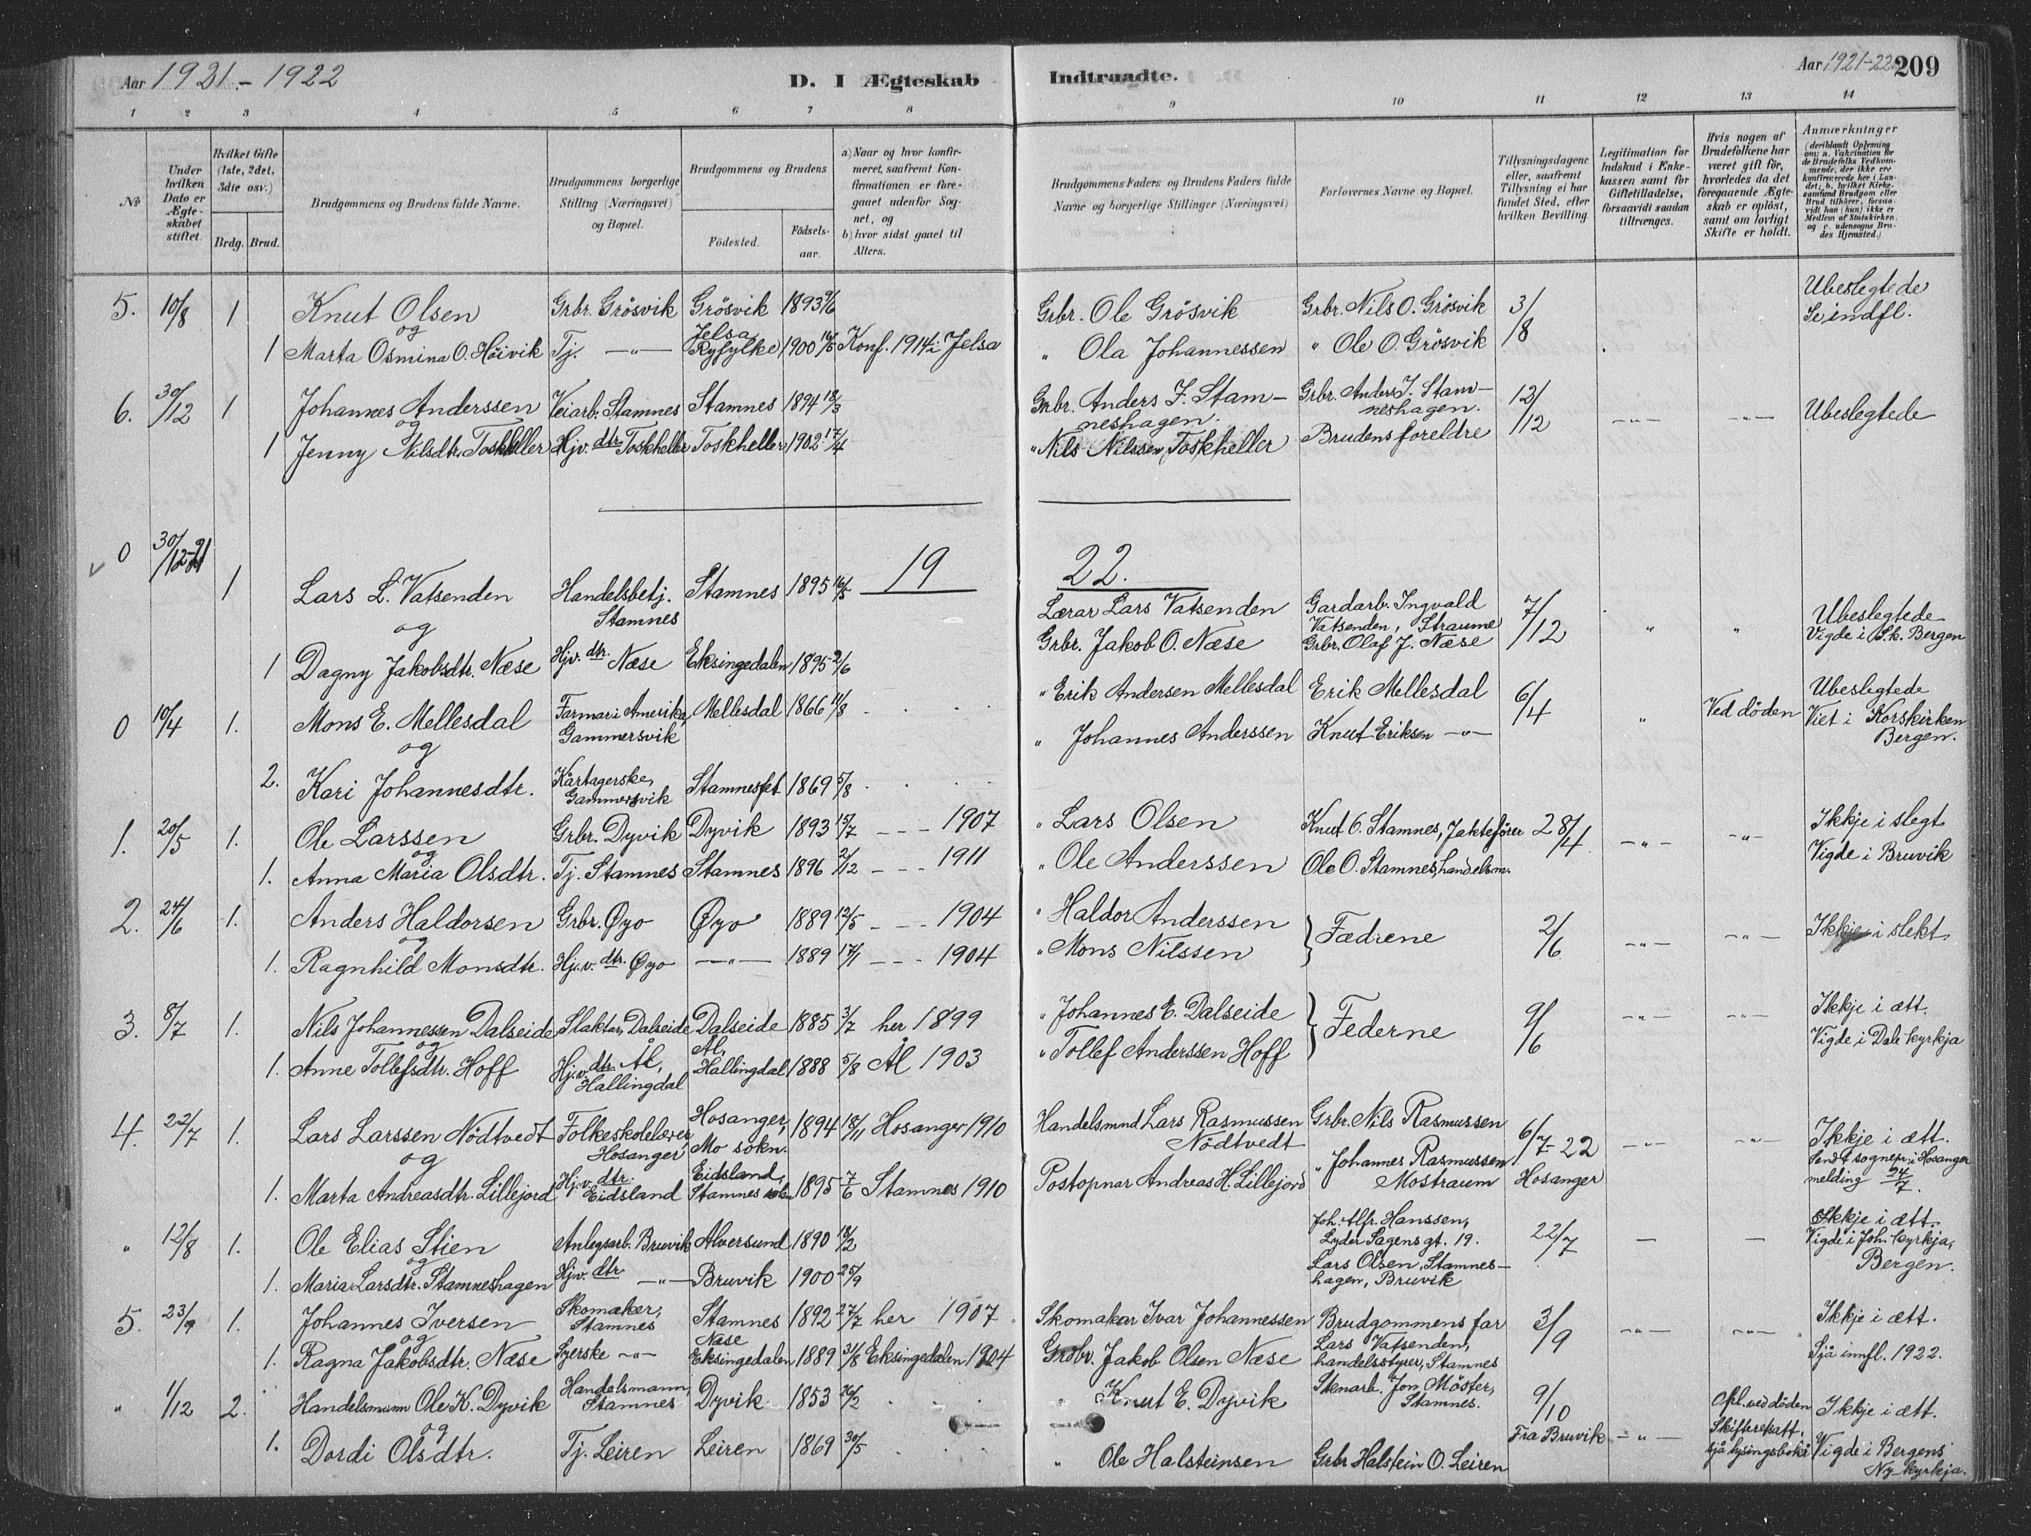 Aar 1921 - 1922
D. I Ægteskab
Indtraadte.
Aar 1921-22 209
1 2 3 4 5 6 7 8 9 10 11 12 13 14
№
Under hvilken Dato er Ægteskabet stiftet.
Hvilket Gifte (1ste, 2det, 3die osv.)
Brdg. Brud.
Brudgommens og Brudens fulde Navne.
Brudgommens borgerlige Stilling (Næringsvei) og Bopæl.
Brudgommens og Brudens
Födested.
Födselsaar.
a) Naar og hvor konfirmeret, saafremt Konfirmationen er foregaaet udenfor Sognet, og
b) hvor sidst gaaet til Alters.
Brudgommens Faders og Brudens Faders fulde Navne og borgerlige Stillinger (Næringsvei)
Forlovernes Navne og Bopæl.
Tillysningsdagene eller, saafremt Tillysning ei har fundet Sted, efter hvilken Bevilling.
Legitimation for Indskud i Enkekassen samt for Giftetilladelse, forsaavidt saadan tiltrænges.
Hvis nogen af Brudefolkene har været gift för, hvorledes da det foregaaende Ægteskab er oplöst, samt om lovligt Skifte er holdt.
Anmærkninger (deriblandt Oplysning om: a. Vakcination for de Brudefolks Vedkommende, der ikke ere konfirmerede her i Landet; b. hvilket Kirkesamfund Brudgom eller Brud tilhörer, forsaavidt han (hun) ikke er Medlem af Statskirken, og c. udensogns Brudes Hjemsted.)
5. 10/8 1 Knut Olsen Grbr. Grösvik Grösvik 1893 9/6 Grbr. Ole Grösvik Grbr. Nils O. Grösvik 3/8 Ubeslegtede Se indfl.
og
1 Marta Osmina O. Höivik Tj. —"— Jelsa Ryfylke 1900 16/5 Konf. 1914 i Jelsa " Ola Johannessen " Ole O. Grösvik
6. 30/12 1 Johannes Anderssen Veiarb. Stamnes Stamnes 1894 18/3 Grbr. Anders J. Stamneshagen. Grbr. Anders J. Stamneshagen. 12/12 —"— —"— Ubeslegtede
og
1 Jenny Nilsdtr. Toskheller Hjv. dtr. Toskheller Toskheller 1902 17/4 " Nils Nilssen, Toskheller Brudens foreldre
19 22.
0 30/12-21 1 Lars L. Vatsenden Handelsbetj. Stamnes Stamnes 1895 16/5 Lærar Lars Vatsenden Gardarb. Ingvald Vatsenden, Straume 7/12 " " Ubeslegtede Vigde i S.k. Bergen
og
1 Dagny Jakobsdtr. Næse Hjv. dtr. Næse Eksingedalen 1895 2/6 Grbr. Jakob O. Næse Grbr. Olaf J. Næse
0 10/4 1. Mons E. Mellesdal Farmar i Amerika, Gammersvik Mellesdal 1866 11/8 " Erik Andersen Mellesdal Erik Mellesdal 6/4 " Ved döden Ubeslegtede Viet i Korskirken Bergen.
og
2. Kari Johannesdtr. Kårtagerske, Gammersvik Stamneset 1869 5/8 " Johannes Anderssen Knut Eriksen —"—
1. 20/5 1. Ole Larssen Grbr. Dyvik Dyvik 1893 15/7 - - - 1907 " Lars Olsen Knut O. Stamnes, Jaktefører 28/4 —"— —"— Ikkje i slegt Vigde i Bruvik
og
1. Anna Maria Olsdtr. Tj. Stamnes Stamnes 1896 2/12 - - - 1911 " Ole Anderssen Ole O. Stamnes, handelsm.
2. 24/6 1. Anders Haldorsen Grbr. Øyo Øyo 1889 12/5 - - - 1904 " Haldor Anderssen Fædrene 2/6 —"— —"— Ikkje i slekt
og
1. Ragnhild Monsdtr. Hjv. dtr. Øyo —"— 1889 17/1 - - - 1904 " Mons Nilssen
3. 8/7 1. Nils Johannessen Dalseide Slaktar, Dalseide Dalseide 1885 3/7 her 1899 " Johannes E. Dalseide Federne 9/6 —"— —"— Ikkje i ætt. Vigde i Dale kyrkja
og
1. Anne Tollefsdtr. Hoff Hjv. dtr. Ål, Hallingdal Ål, Hallingdal 1888 5/8 Ål 1903 " Tollef Anderssen Hoff
4. 22/7 1. Lars Larssen Nödtvedt Folkeskolelærer Hosanger Hosanger, Mo sokn. 1894 18/11 Hosanger 1910 Handelsmnd Lars Rasmussen Nödtvedt Grbr. Nils Rasmussen 6/7-22 —"— —"— Ikkje i ætt. Sendt sognepr. i Hosanger melding 24/7.
og
1. Marta Andreasdtr. Lillejord Hjv. dtr. Eidsland Eidsland, Stamnes sokn 1895 7/6 Stamnes 1910 Postopnar Andreas H. Lillejord " Johannes Rasmussen Mostraum Hosanger
" 12/8 1. Ole Elias Stien Anlegsarb. Bruvik Alversund 1890 18/2 Joh. Alfr. Hanssen, Lyder Sagens gt. 19. 22/7 — — Ikkje i ætt. Vigde i Joh. kyrkja, Bergen.
og
1. Maria Larsdtr. Stamneshagen Hjv. dtr —"— Bruvik 1900 25/9 Lars Olsen, Stamneshagen, Bruvik
5. 23/9 1. Johannes Iversen Skomaker, Stamnes Stamnes 1892 27/7 her 1907 Skomaker Ivar Johannessen Brudgommens far 3/9 —"— —"— Ikkje i ætt. Sjå innfl. 1922.
og
1. Ragna Jakobsdtr. Næse Syerske —"— Næse Eksingedalen 1889 31/8 Eksingedalen 1904 Grdbr. Jakob Olsen Næse Lars Vatsenden, handelsstyrer, Stamnes
" 1/12 2. Handelsmann Ole K. Dyvik Handelsmann, Stamnes Dyvik 1853 26/2 " Knut E. Dyvik Stenarb. Jon Möster, Stamnes. 9/10 Fra Bruvik —"— Opl. ved döden Skifterett. sjå lysingsboka Ikkje i ætt. Vigde i Bergens Ny kyrkja.
og
1. Dordi Olsdtr. Tj. Leiren Leiren 1869 30/5 " Ole Halsteinsen Grbr Halstein O. Leiren